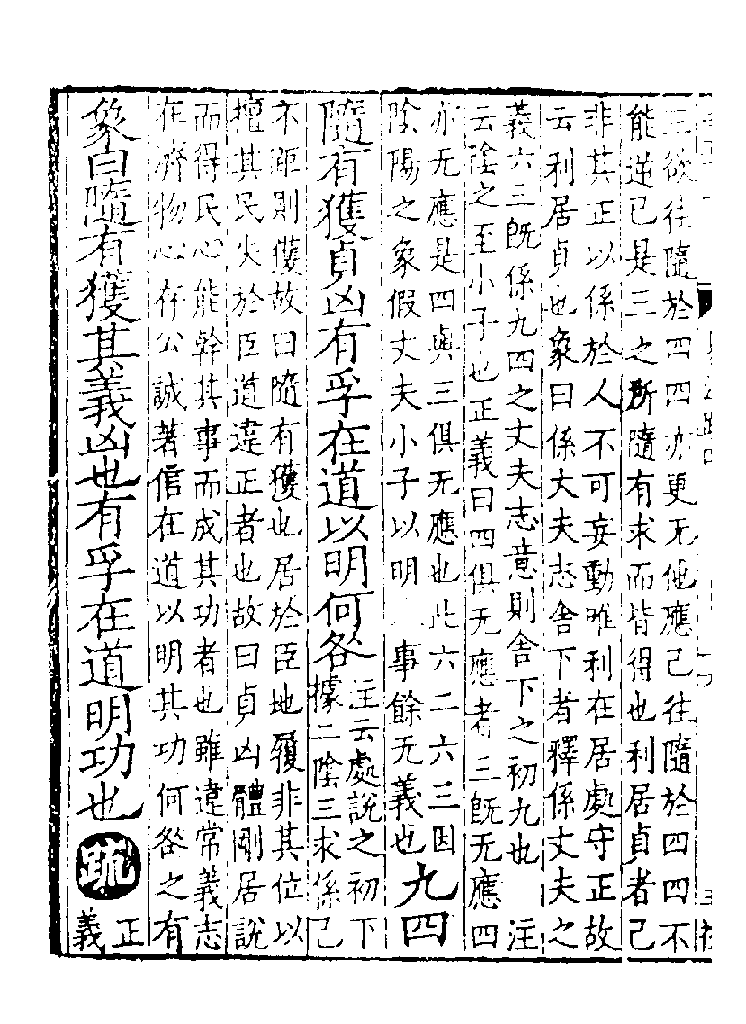 三欲往隨於四四亦更无他應己往隨於四四不
能逆已是三之所隨有求而皆得也利居貞者己
非其正以係於人不可妄動唯利在居處守正故
云利居貞也象曰係丈夫志舍下者釋係丈夫之
義六三旣係九四之丈夫志意則舍下之初九也　注
云陰之至小子也正義曰四俱无應者三旣无應四
亦无應是四與三俱无應也此六二六三因
陰陽之象假丈夫小子以明人事餘无義也
九四
隨有獲貞凶有孚在道以明何咎
注云處說之初下
據二陰三求係己
不距則獲故曰隨有獲也居於臣地履非其位以
擅其民失於臣道違正者也故曰貞凶體剛居說
而得民心能幹其事而成其功者也雖違常義志
在濟物心存公誠著信在道以明其功何咎之有
象曰隨有獲其義凶也有孚在道明功也
疏
正
義